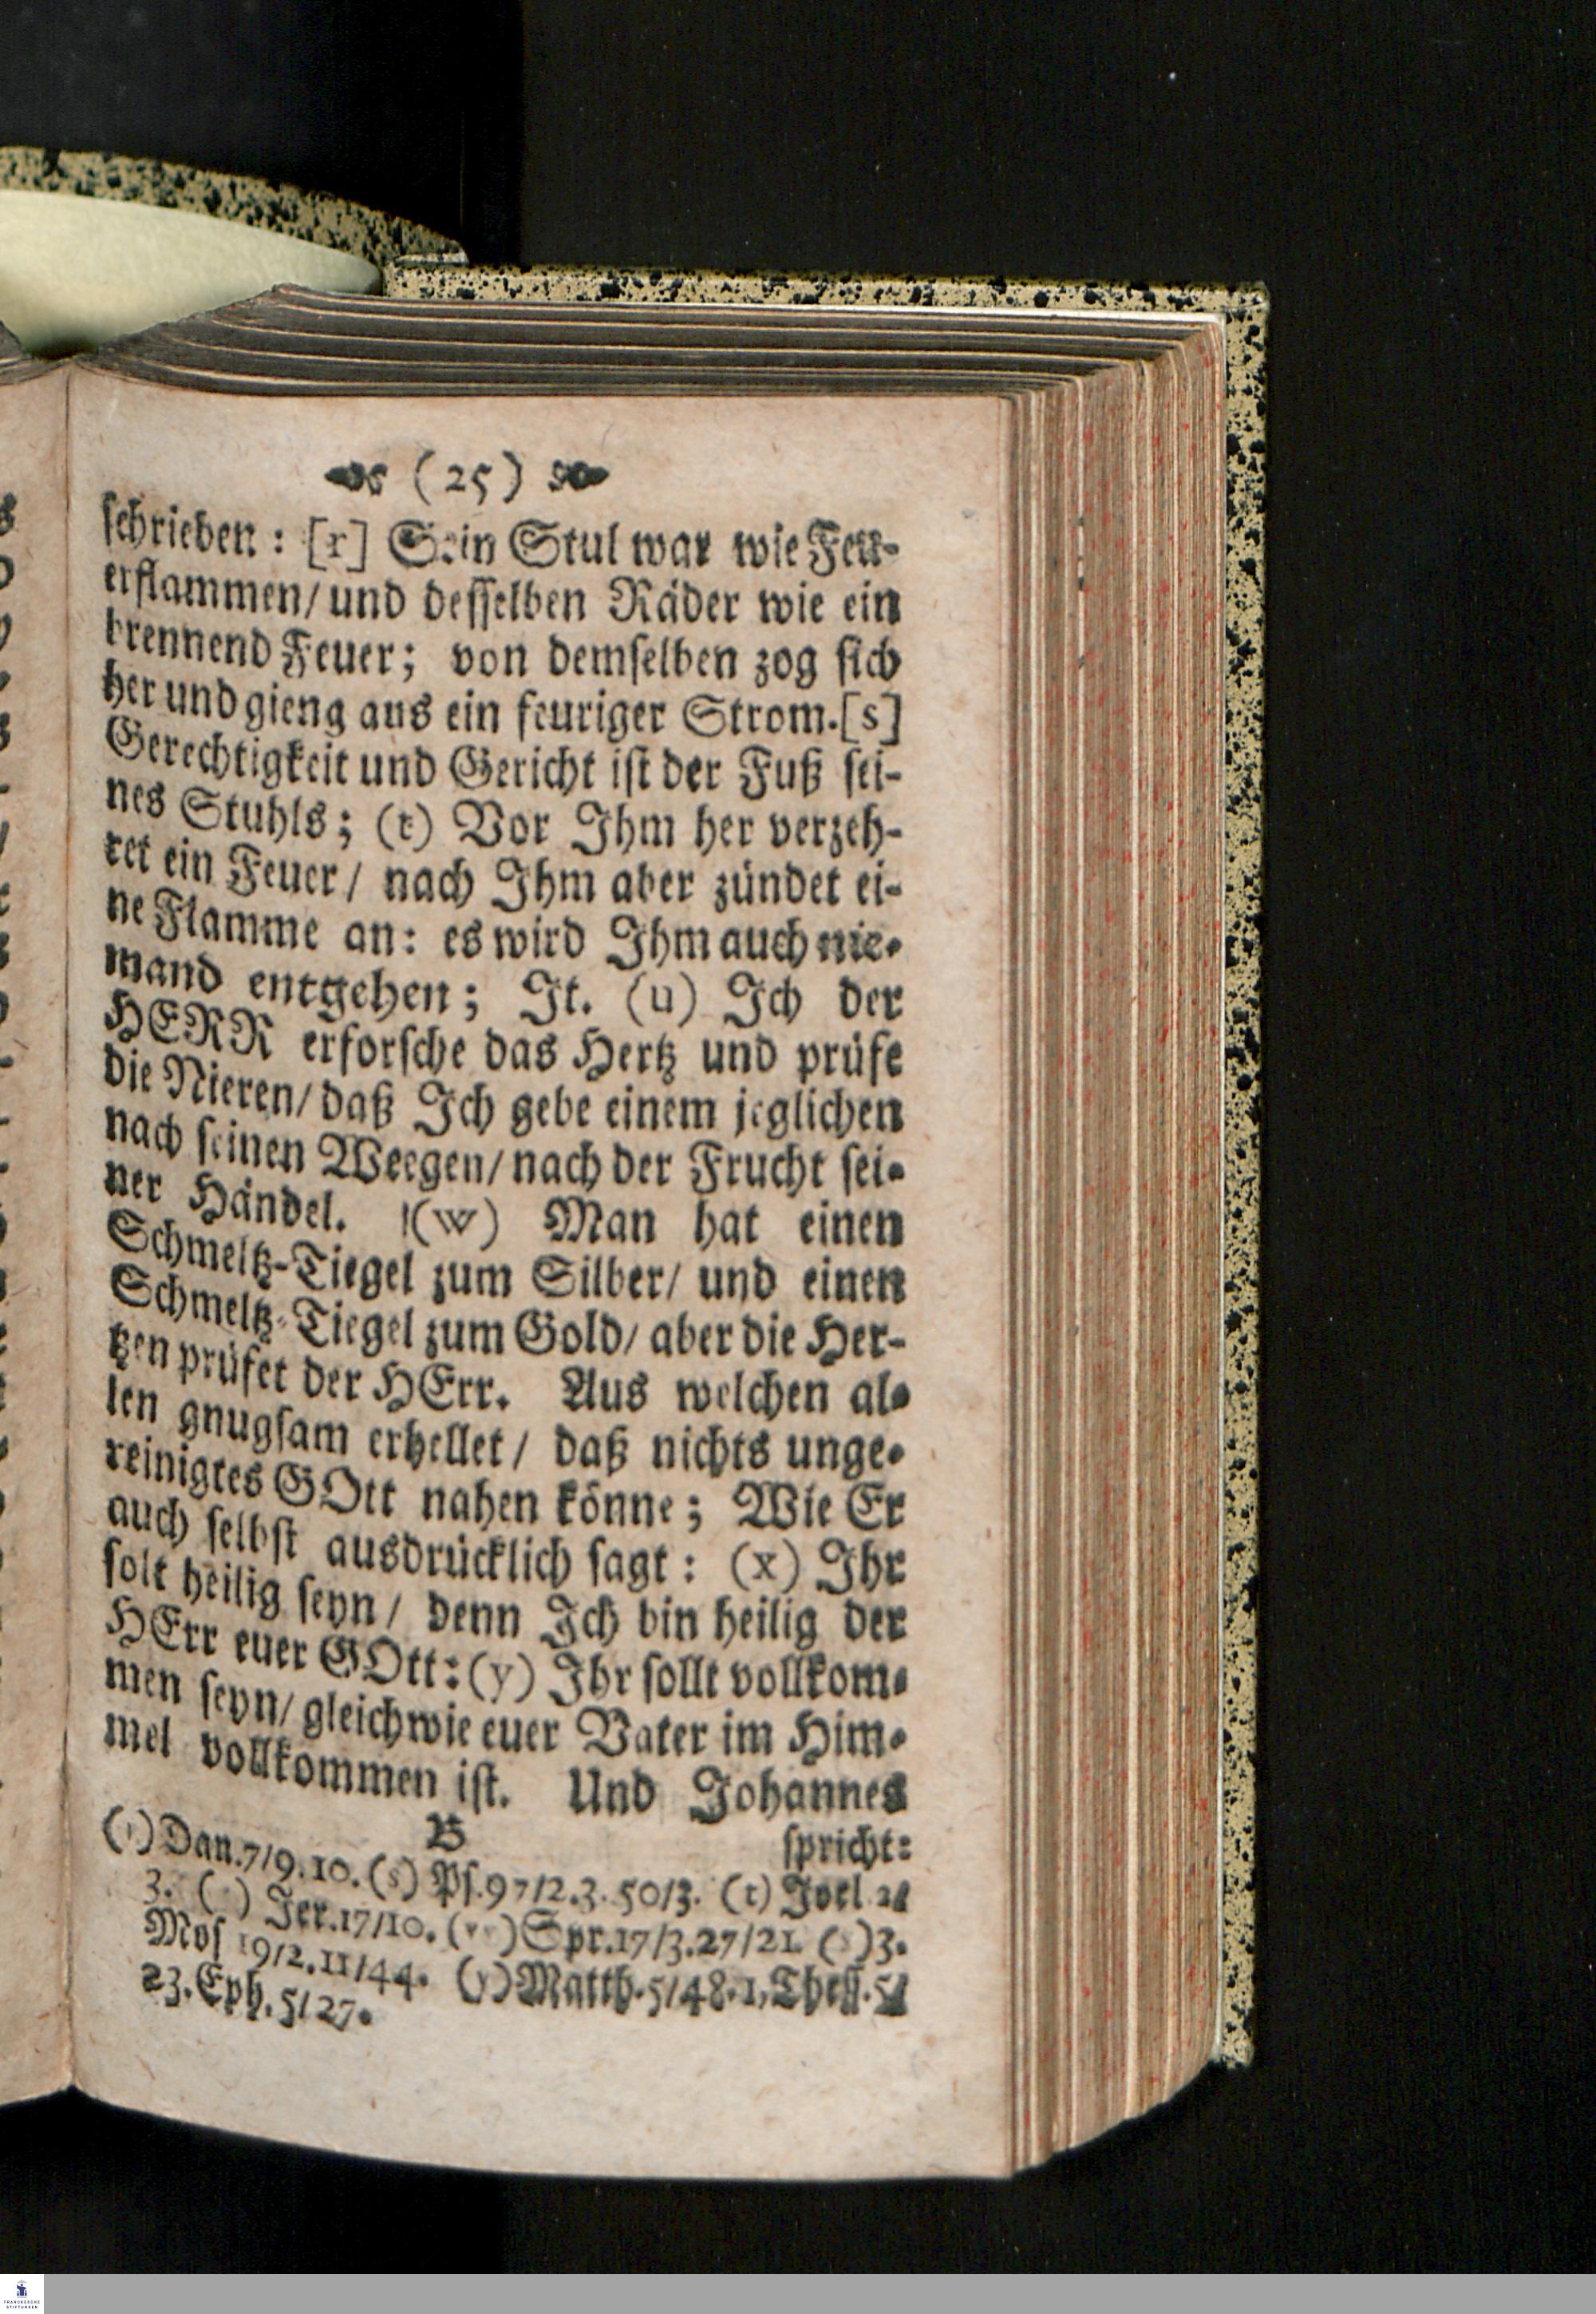 (25)
schrieben: [r] Sein Stul war wie Feu-
erflammen/ und desselben Räder wie ein
brennend Feuer; von demselben zog sich
her und gieng aus ein feuriger Strom. [s]
Gerechtigkeit und Gericht ist der Fuß sei-
nes Stuhls; (t) Vor Ihm her verzeh-
ret ein Feuer/ nach Ihm aber zündet ei-
ne Flamme an: es wird Ihm auch nie-
mand entgehen; It. (u) Ich der
HERR erforsche das Hertz und prüfe
die Nieren/ daß Ich gebe einem jeglichen
nach seinen Weegen/ nach der Frucht sei-
ner Händel. (w) Man hat einen
Schmeltz-Tiegel zum Silber/ und einen
Schmeltz-Tiegel zum Gold/ aber die Her-
tzen prüfet der HErr. Aus welchen al-
len gnugsam erhellet/ daß nichts unge-
reinigtes GOtt nahen könne; Wie Er
auch selbst ausdrücklich sagt: (x) Ihr
solt heilig seyn/ denn Ich bin heilig der
HErr euer GOtt: (y) Ihr sollt vollkom-
men seyn/ gleichwie euer Vater im Him-
mel vollkommen ist. Und Johannes
B spricht:
Dan. 7/9. 10. (s) Ps. 97/2. 3. 50/3. (t) Joel 2/
3. Jer. 17/10. Spr. 17/3. 27/21. 3.
Mos 19/2. 11/44. (y) Matth. 5/48. 1. Thess. 5/
23. Eph. 5/27.
FRANCKESCHE
STIFTUNGEN